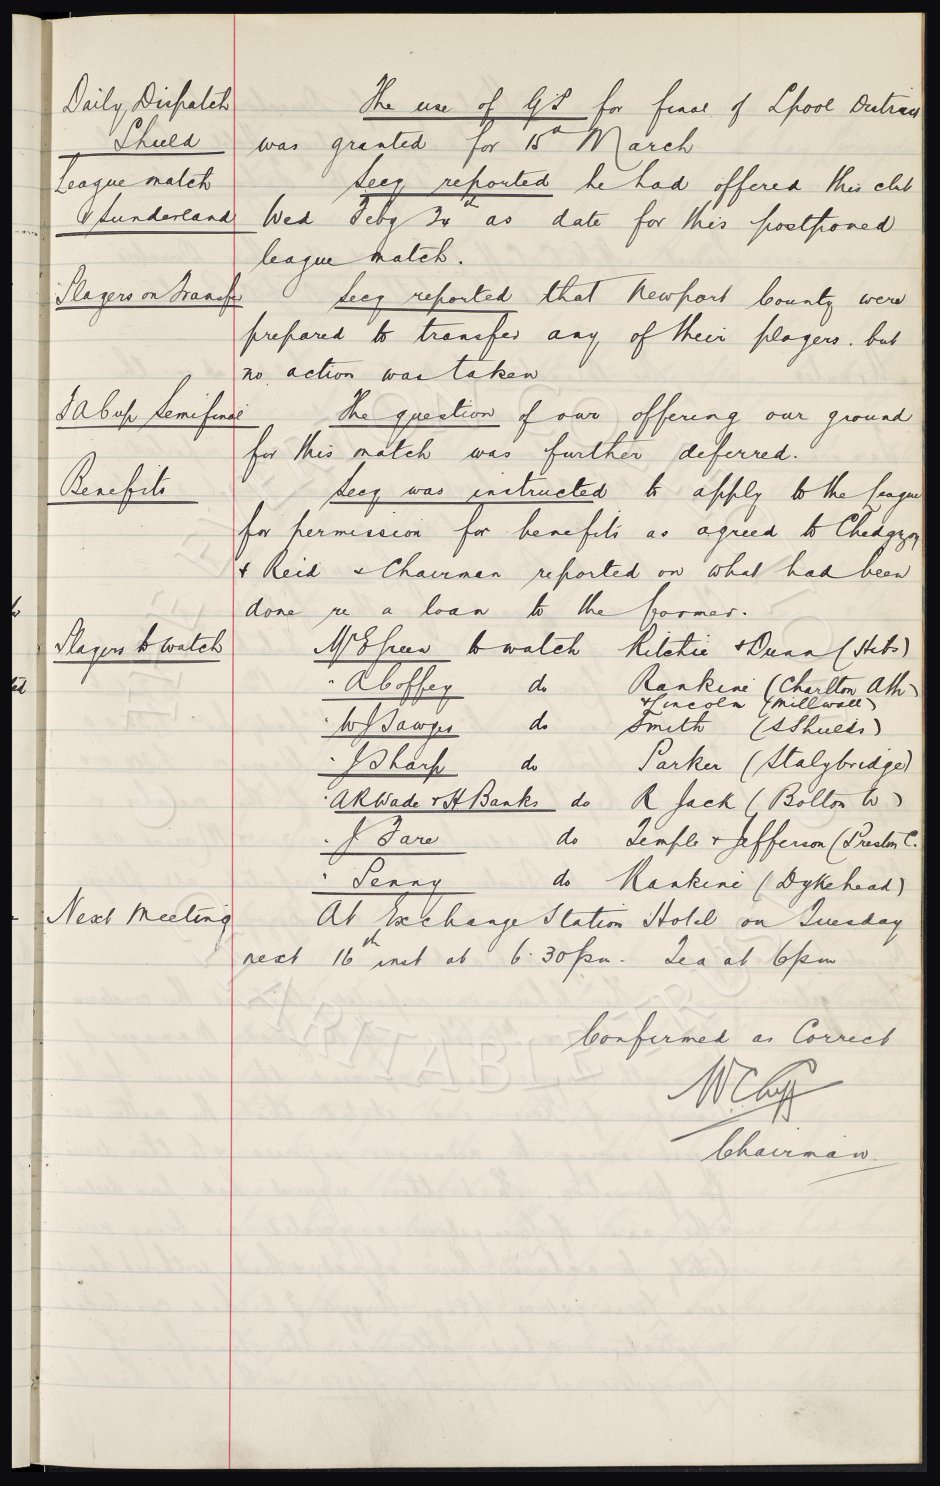 Daily Dispatch The use of G.P. for final of Lpool District
Shield was granted for 15th March
League match Secy reported he had offered this club
v Sunderland Wed Feby 24th as date for this postponed
league match.
Players on Transfer Secy reported that Newport County were
prepared to transfer any of their players. but
no action was taken
F A Cup Semifinal The question of our offering our ground
for this match was further deferred.
Benefits Secy was instructed to apply to the League
for permission for benefits as agreed to Chedgzoy
& Reid & Chairman reported on what had been
done re a loan to the former.
Players to watch Mr E Green to watch Ritchie & Dunn (Hibs)
" A Coffey do Rankine (Charlton Ath)
& Lincoln (Millwall)
" W J Sawyer do Smith (S Shields)
" J Sharp do Parker (Stalybridge)
" A R Wade & H Banks do R Jack (Bolton W)
" J Fare do Temple & Jefferson (Preston C.
" Penny do Rankine (Dykehead)
Next Meeting At Exchange Station Hotel on Tuesday
next 16th inst at 6.30pm. Tea at 6pm
Confirmed as Correct
W C Cuff
Chairman